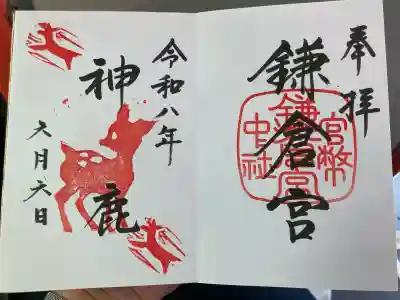 奉拝
鎌倉宮
官幣
鎌倉宮
中社
令和八年
神鹿
六月六日